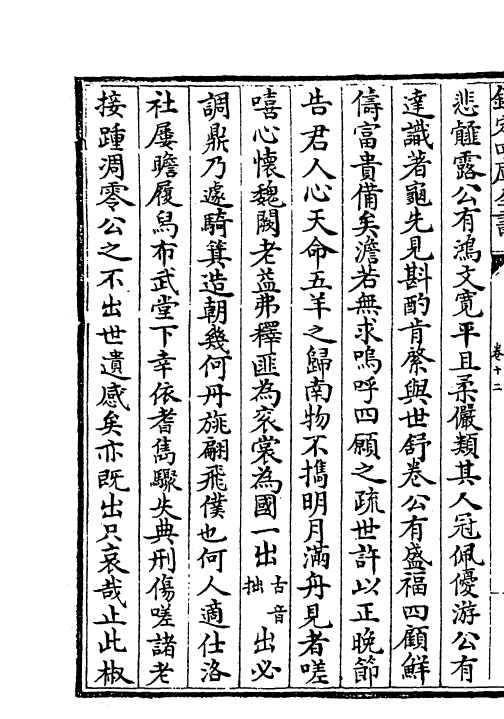 欽定四庫全書
卷十二
悲韰露公有鴻文寛平且柔儼類其人冠佩優游公有
達識著龜先見斟酌肯綮與世舒卷公有盛福四顧鮮
儔富貴備矣澹若無求嗚呼四願之疏世許以正晚節
告君人心天命五羊之歸南物不攜明月滿舟見者嗟
嘻心懷魏闕老益弗釋匪為衮裳為國一出古音拙出必
調鼎乃遽騎箕造朝幾何丹旐翩飛僕也何人適仕洛
社屢瞻履舄布武堂下幸依耆雋驟失典刑傷嗟諸老
接踵凋零公之不出世遺感矣亦既出只哀哉止此椒